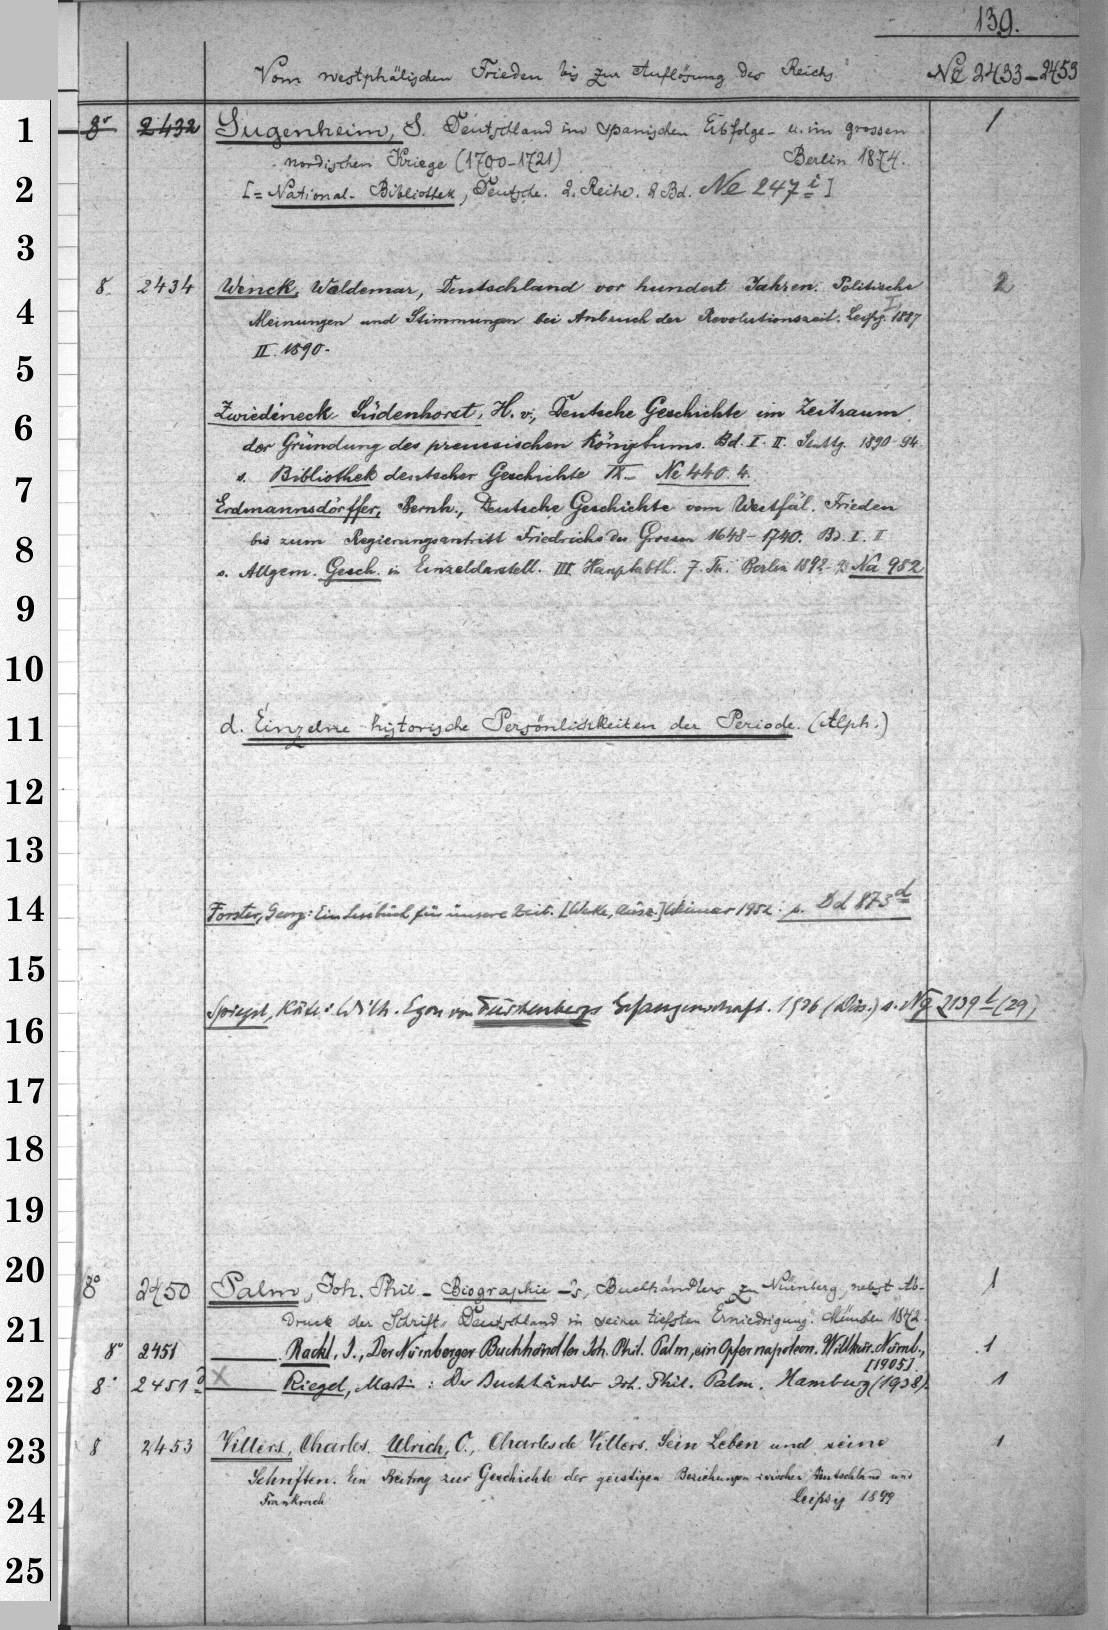 139.
Vom westphälischen Frieden bis zur Auflösung des Reichs.
Ne 2433–2453
1
8° 2432 Sugenheim, S. Deutschland im spanischen Erbfolge- u. im grossen 1
nordischen Kriege (1700–1721) Berlin 1874.
2
[= National-Bibliothek, Deutsche. 2. Reihe. 2 Bd. Ne 247 i]
3
8. 2434 Wenck, Woldemar, Deutschland vor hundert Jahren. Politische 2
4
Meinungen und Stimmungen bei Anbruch der Revolutionszeit. Leipzg. I. 1887
II. 1890.
5
6
Zwiedineck-Südenhorst, H. v., Deutsche Geschichte im Zeitraum
der Gründung des preussischen Königtums. Bd. I. II. Stuttg. 1890-94.
7
s. Bibliothek deutscher Geschichte IX. Ne 440. 4.
Erdmannsdörffer, Bernh., Deutsche Geschichte vom Westfäl. Frieden
8
bis zum Regierungsantritt Friedrichs des Grossen 1648–1740. Bd. I. II
s. Allgem. Gesch. in Einzeldarstell. III Hauptabth. 7. Th. Berlin 1892-93 Na 982
9
10
11
d. Einzelne historische Persönlichkeiten der Periode. (Alph.)
12
13
14
Forster, Georg: Ein Lesebuch für unsere Zeit. [Werke, Ausz.] Weimar 1952. s. Dd 873 d
15
Spiegel, Käte: Wilh. Egon von Fürstenbergs Gefangenschaft. 1936 (Diss.) s. Ng 2139 t (29)
16
17
18
19
20
8° 2450 Palm, Joh. Phil. – Biographie –'s, Buchhändlers zu Nürnberg, nebst Ab- 1
druck der Schrift: Deutschland in seiner tiefsten Erniedrigung. München 1842.
21
8° 2451 —— Rackl, J., Der Nürnberger Buchhändler Joh. Phil. Palm, ein Opfer napoleon. Willkür. Nürnb., 1
[1905].
22
8° 2451 a X —— Riegel, Martin: Der Buchhändler Joh. Phil. Palm. Hamburg (1938). 1
23
8 2453 Villers, Charles. Ulrich, O., Charles de Villers. Sein Leben und seine 1
Schriften. Ein Beitrag zur Geschichte der geistigen Beziehungen zwischen Deutschland und
Frankreich Leipzig 1899
24
25